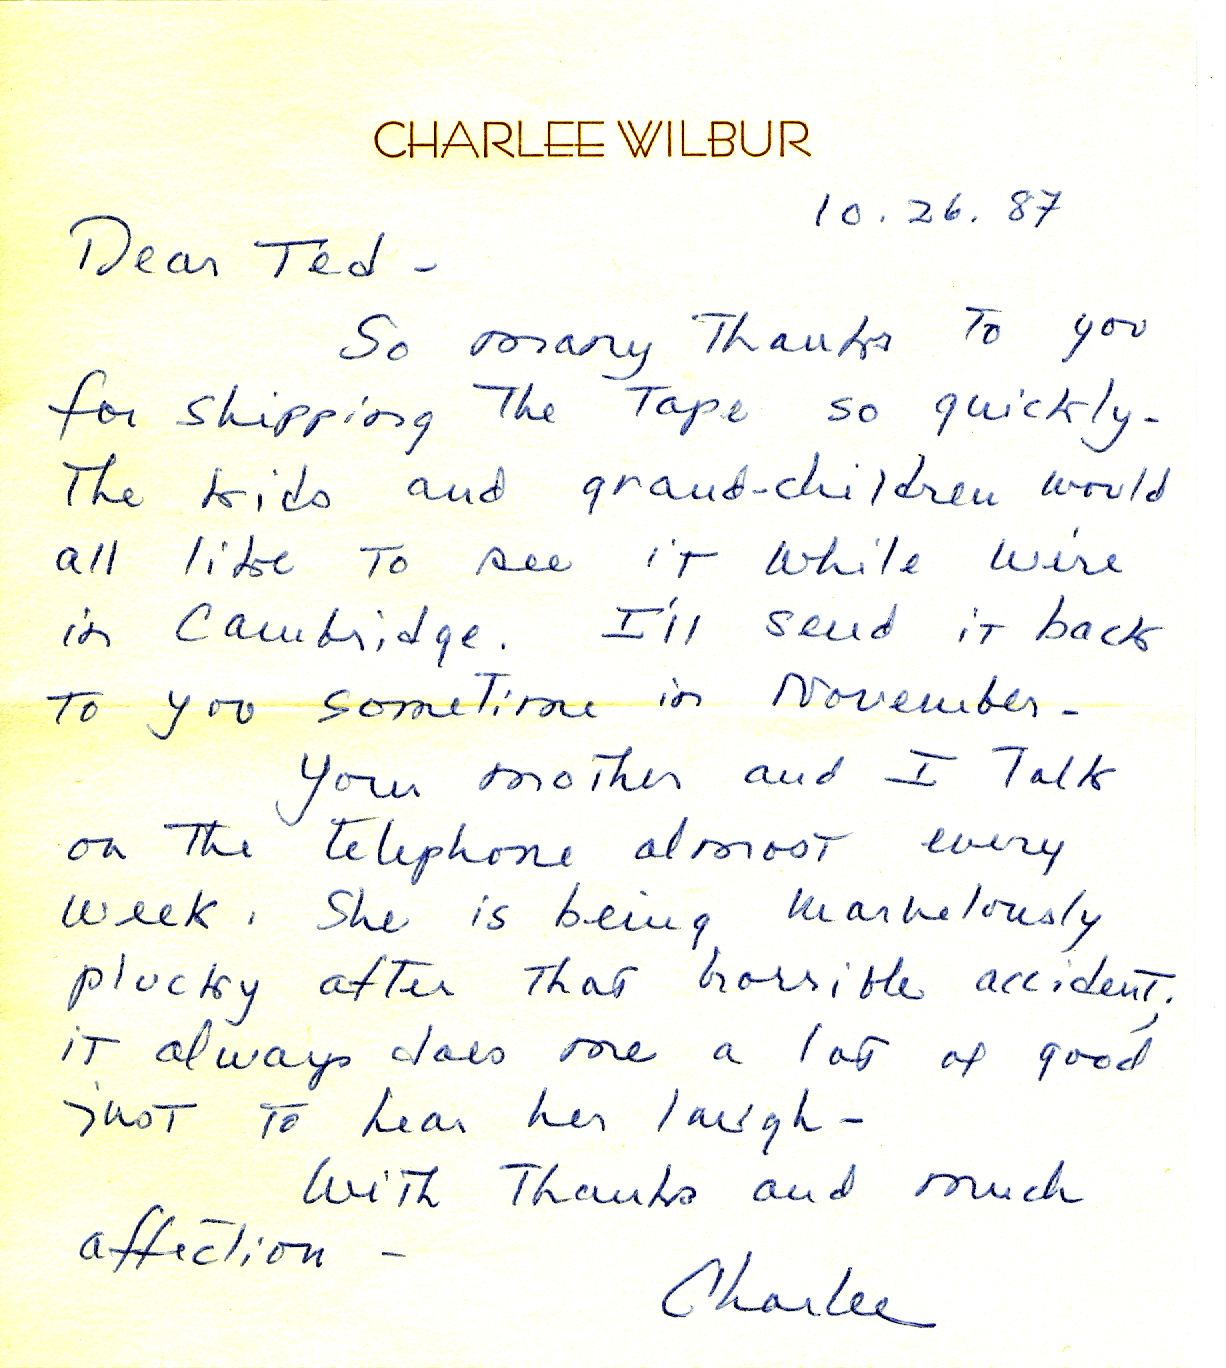 CHARLEE WILBUR
10.26.87
Dear Ted -
So many Thanks To you
for shipping The Tape so quickly-
The kids and grand-children would
all like To see iT while we're
in Cambridge. I'll send iT back
To you someTime in November-
Your moTher and I Talk
on The telephone almosT every
week. She is being marvelously
plucky after That horrible accident;
iT always does me a lot of good
jusT To hear her laugh-
With Thanks and much
affection -
Charlee